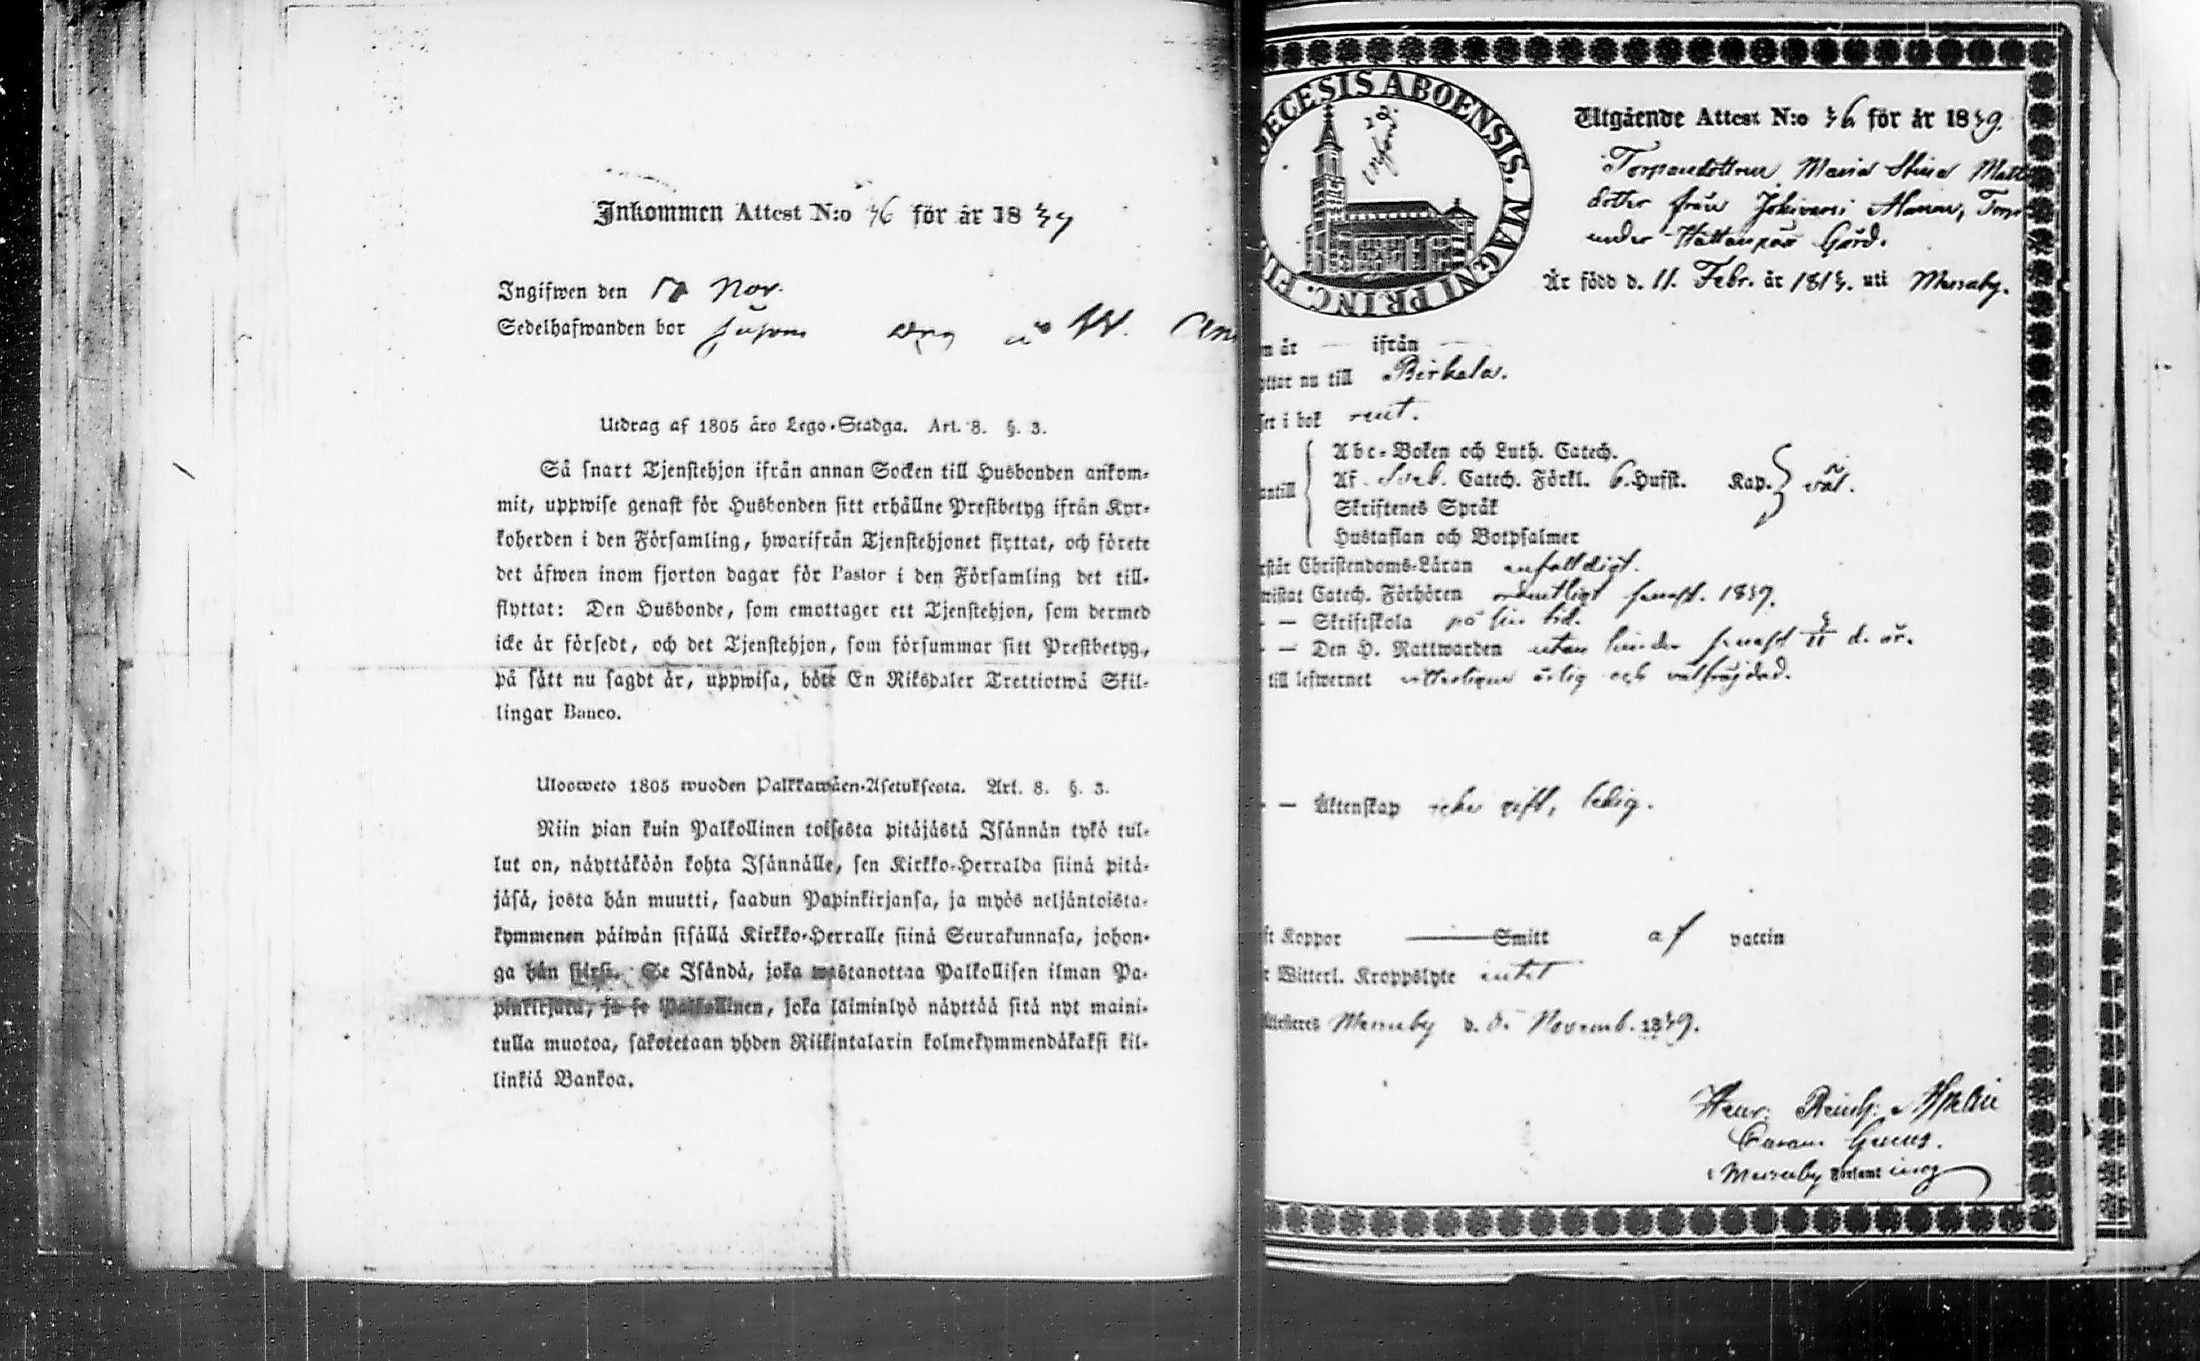 Inkommen Attest N:o 36 för år 1839
Ingifwen den Nov.
Sedelhafwanden bor
Utdrag af 1805 års Lego-Stadga. Art. 8. §. 3.
Så snart Tjenstehjon ifrån annan Socken till Husbonden ankom-
mit, uppwise genast för Husbonden sitt erhållne Prestbetyg ifrån Kyr-
koherden i den Församling, hwarifrån Tjenstehjonet flyttat, och förete
det äfwen inom fjorton dagar för Pastor i den Församling det till-
flyttat: Den Husbonde, som emottager ett Tjenstehjon, som dermed
icke är försedt, och det Tjenstehjon, som försummar sitt Prestbetyg,
på sätt nu sagdt är, uppwisa, böte En Riksdaler Trettiotwå Skil-
lingar Banco.
Ulosweto 1805 wuoden Palkkawäen-Asetuksesta. Art. 8. §. 3.
Niin pian kuin Palkollinen toisesta pitäjästä Isännän tykö tul-
lut on, näyttäköön kohta Isännälle, sen Kirkko-Herralda siinä pitä-
jäsä, josta hän muutti, saadun Papinkirjansa, ja myös neljäntoista-
kymmenen päiwän sisällä Kirkko-Herralle siinä Seurakunnasa, johon-
ga hän siirsi. Se Isändä, joka wastanottaa Palkollisen ilman Pa-
pinkirjata, ja se Palkollinen, joka laiminlyö näyttää sitä nyt maini-
tulla muotoa, sakotetaan yhden Riikintalarin kolmekymmendäkaksi kil-
linkiä Bankoa.
DIOECESIS ABOENSIS. MAGNI PRINC. FIN
Utgående Attest N:o 36 för år 1839.
Torparedottren Maria Stina Matts
dotter från Jokivarsi Alanen, Torp
under Hattanpää Gård.
Är född d. 11. Febr. år 1813. uti Messuby.
år — ifrån —
nu till Birkala.
i bok rent.
Abc-Boken och Luth. Catech.
Af Sveb. Catech. Förkl. 6. Hufst. Kap. väl.
Skriftenes Språk
Hustaflan och Botpsalmer
Christendoms-Läran enfaldigt.
Catech. Förhören ordentligt senast. 1839.
— Skriftskola på sin tid.
— Den H. Nattwarden utan hinder senast 3/11 d. år.
till lefwernet witterligen ärlig och välfräjdad.
— Äktenskap icke gift, ledig.
Koppor Smitt af vaccin
Witterl. Kroppslyte intet
Messuby d. Novemb. 1839.
Henr. Reinh.
i Messuby Församling